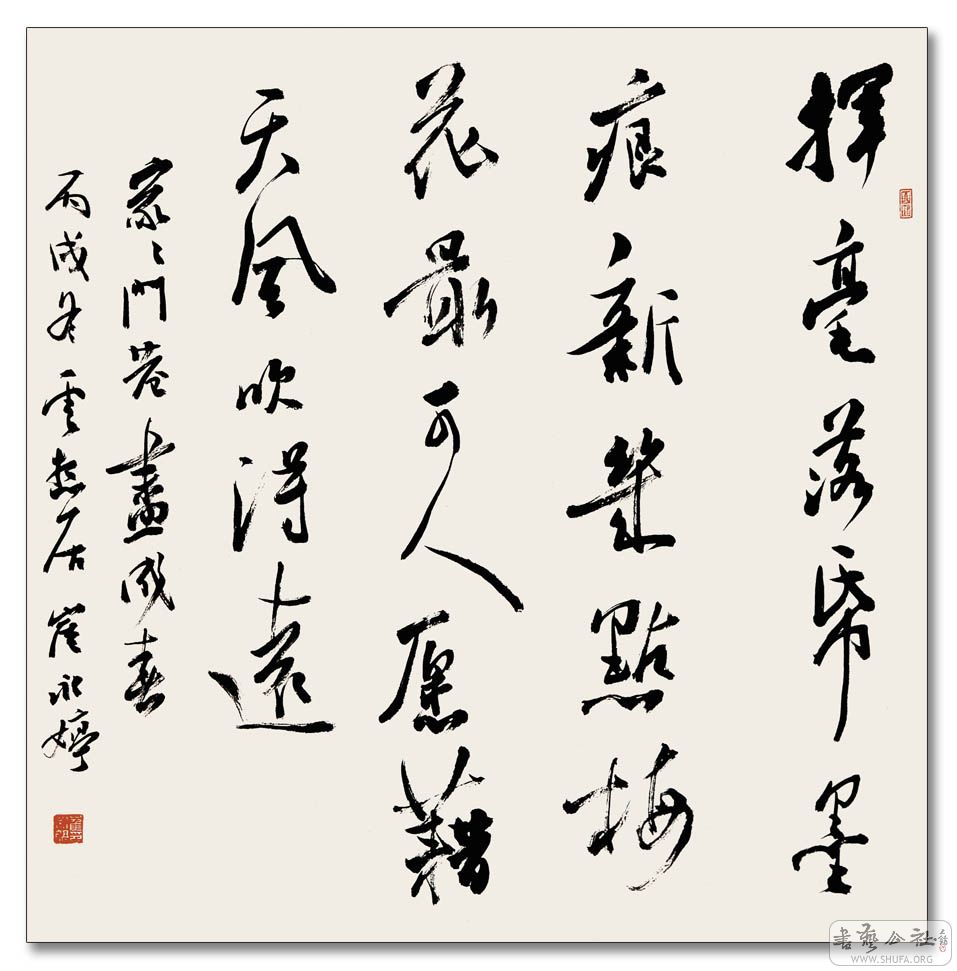 揮毫落帋墨
痕新幾點梅
花最可人愿藉
天風吹得遠
家々門巷盡成春
丙戌冬雲起居崔永婷
書藝公社
WWW.SHUFA.ORG